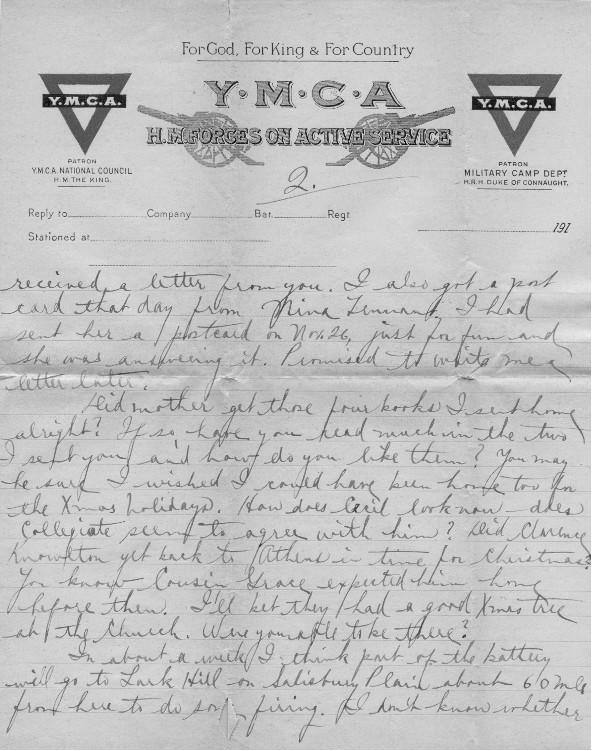 For God, For King & For Country
Y·M·C·A
H.M. FORCES ON ACTIVE SERVICE
Y.M.C.A.
PATRON
Y.M.C.A. NATIONAL COUNCIL
H.M. THE KING.
Y.M.C.A.
PATRON
MILITARY CAMP DEPT
H.R.H. DUKE OF CONNAUGHT.
2.
Reply to Company Bat. Regt
Stationed at
191
received a letter from you. I also got a post
card that day from Mina Tennant. I had
sent her a postcard on Nov. 26, just for fun and
she was answering it. Promised to write me a
letter later.
Did mother get those four books I sent home
alright? If so have you read much in the two
I sent you and how do you like them? You may
be sure I wished I could have been home too for
the Xmas holidays. How does Cecil look now - does
Collegiate seem to agree with him? Did Clarence
Knowlton get back to Athens in time for Christmas?
You know Cousin Grace expected him home
before then. I'll bet they had a good Xmas tree
at the Church. Were you able to be there?
In about a week I think part of the battery
will go to Lark Hill on Salisbury Plain about 60 mls
from here to do some firing. I don't know whether